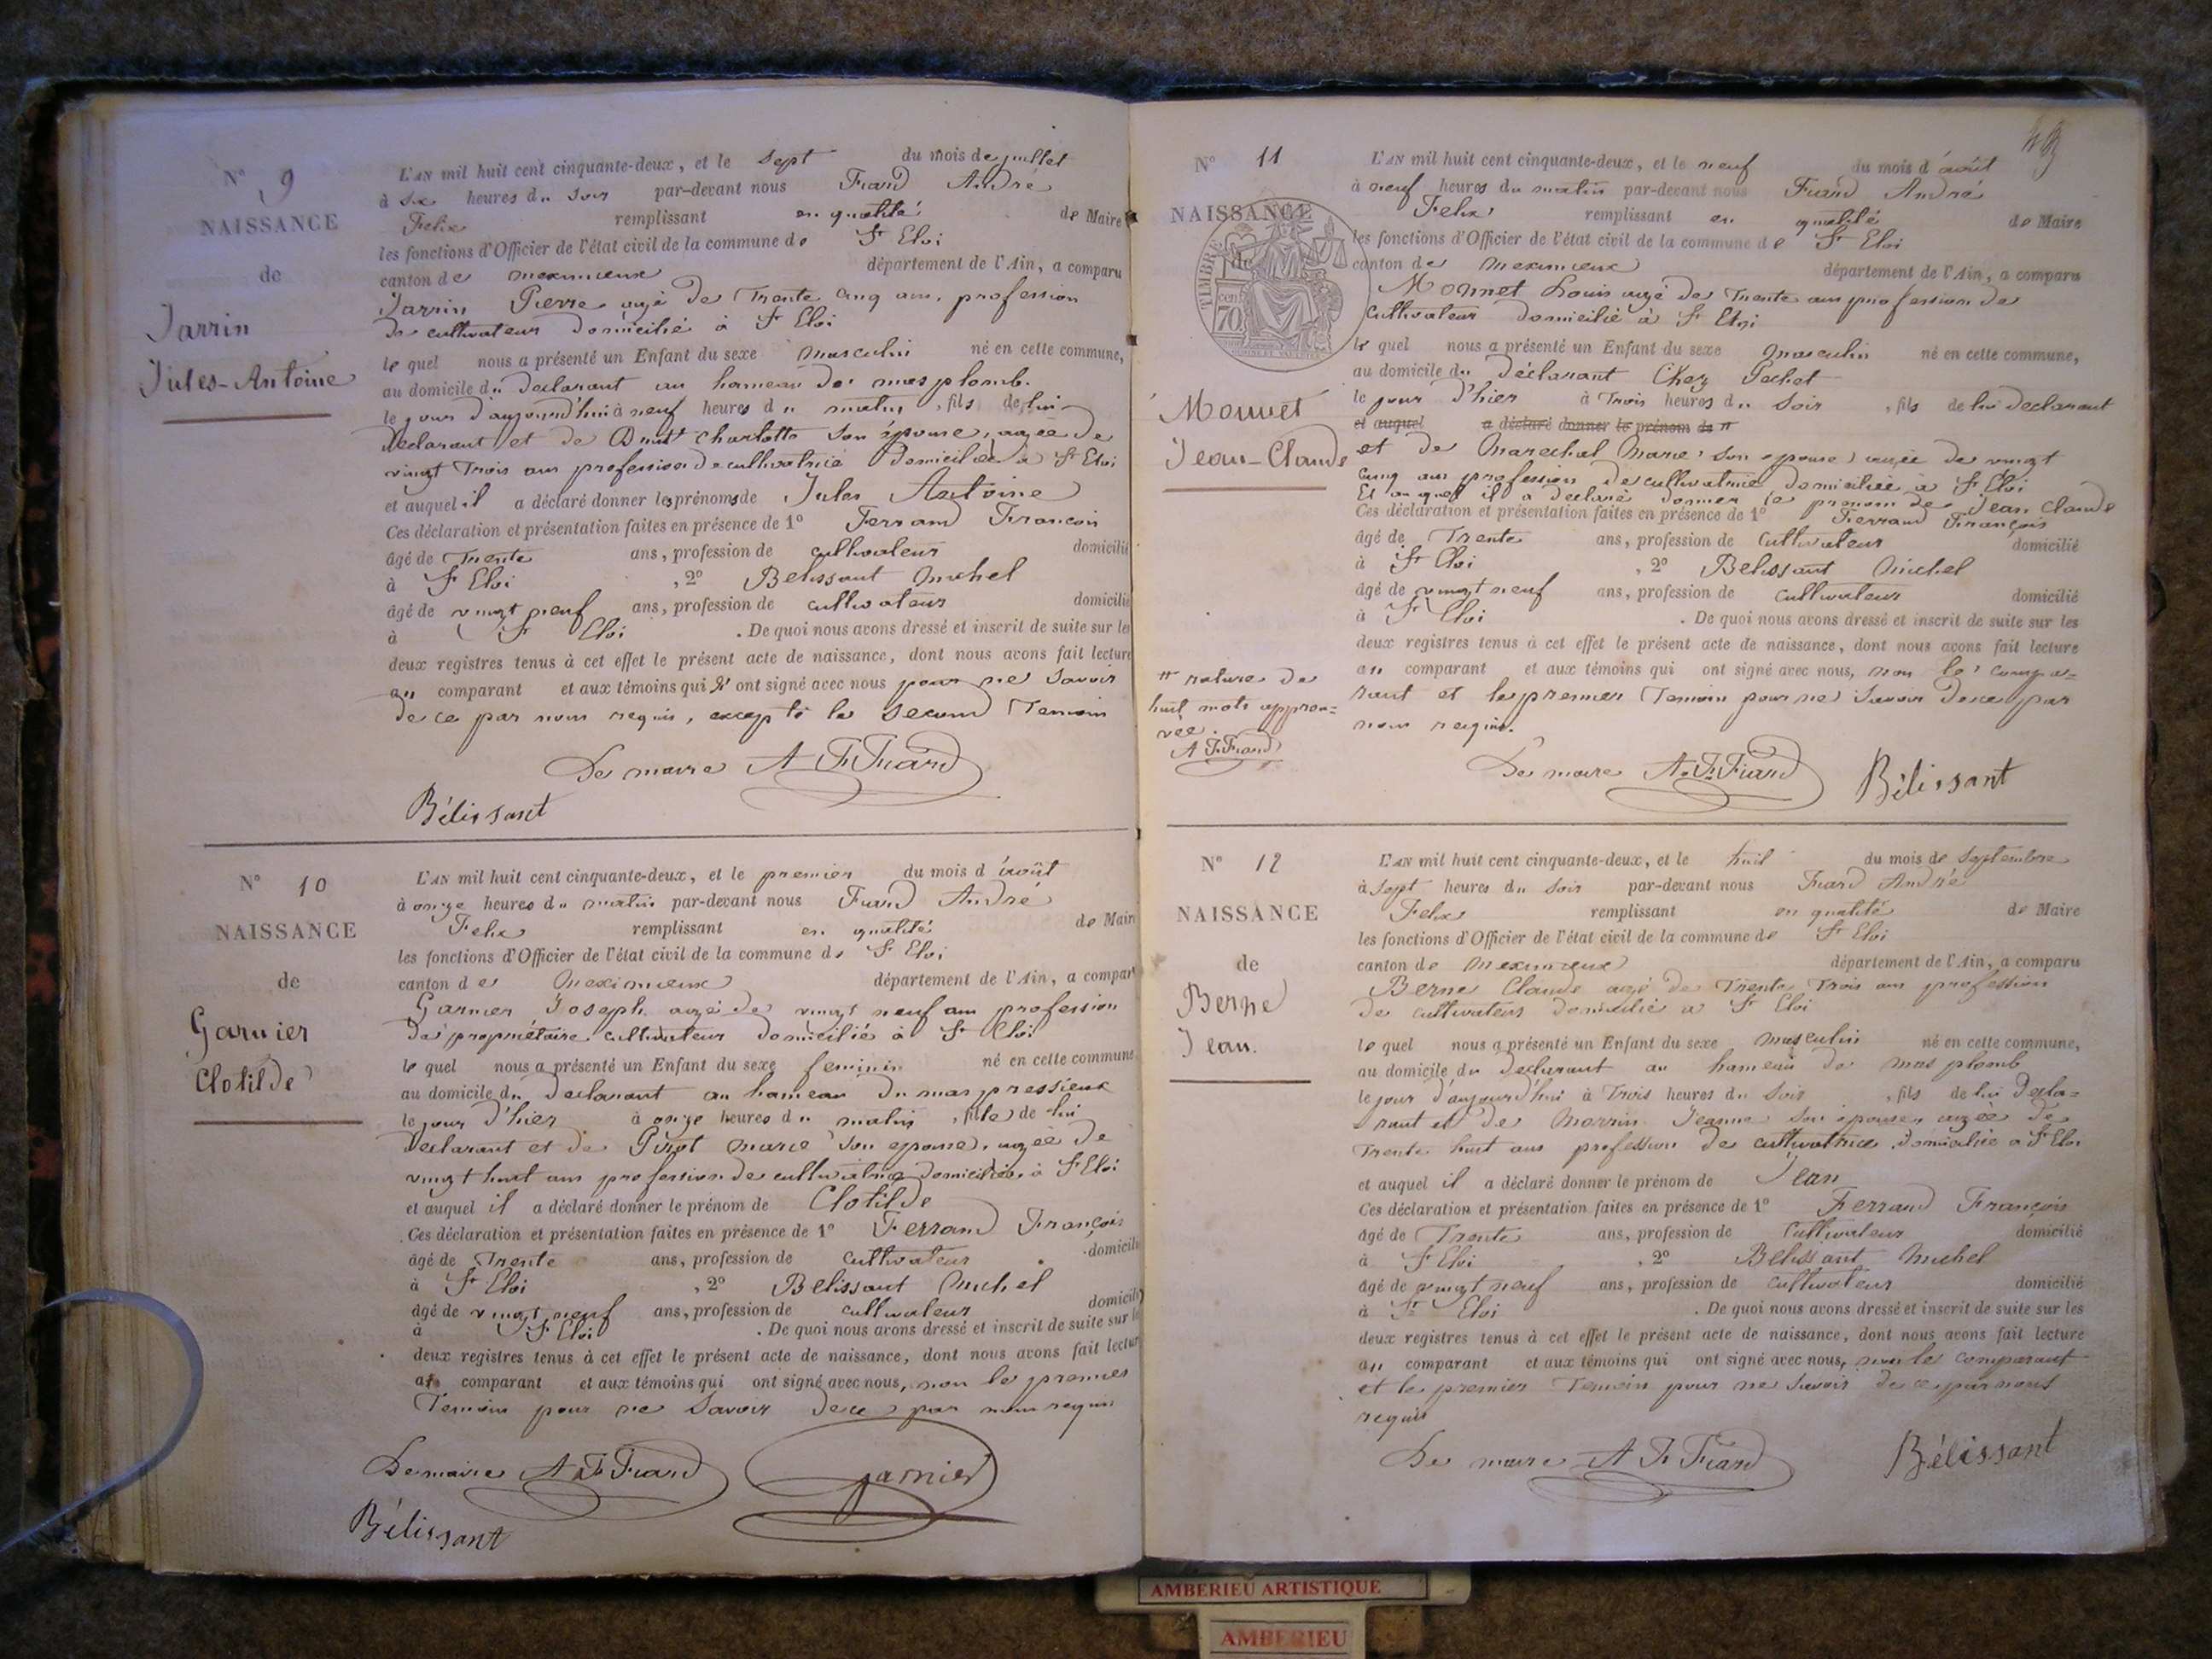 N° 9
NAISSANCE
de
Jarrin
Jules-Antoine
L'AN mil huit cent cinquante-deux, et le sept du mois de juillet
à six heures du soir par-devant nous Fiard André
Felix remplissant en qualité de Maire
les fonctions d'Officier de l'état civil de la commune de St Eloi
canton de meximieux département de l'Ain, a comparu
Jarrin Pierre agé de Trente cinq ans, profession
de cultivateur domicilié à St Eloi
le quel nous a présenté un Enfant du sexe masculin né en cette commune,
au domicile du declarant au hameau de mas plomb.
le jour d'aujourd'hui à neuf heures du matin, fils de lui
declarant et de charlotte son épouse, agée de
vingt Trois ans profession de cultivatrice domiciliée à St Eloi
et auquel il a déclaré donner les prénoms de Jules Antoine
Ces déclaration et présentation faites en présence de 1° Ferrand François
âgé de Trente ans, profession de cultivateur domicilié
à St Eloi, 2° Belissant michel
âgé de vingt neuf ans, profession de cultivateur domicilié
à St Eloi. De quoi nous avons dressé et inscrit de suite sur les
deux registres tenus à cet effet le présent acte de naissance, dont nous avons fait lecture
au comparant et aux témoins qui n' ont signé avec nous pour ne savoir
de ce par nous requis, excepté le second Temoin
Le maire A F Fiard
Bélissant
N° 10
NAISSANCE
de
Garnier
Clotilde
L'AN mil huit cent cinquante-deux, et le premier du mois d'août
à onze heures du matin par-devant nous Fiard André
Felix remplissant en qualité de Maire
les fonctions d'Officier de l'état civil de la commune de St Eloi
canton de Meximieux département de l'Ain, a comparu
Garnier Joseph agé de vingt neuf ans profession
de propriétaire cultivateur domicilié à St Eloi
le quel nous a présenté un Enfant du sexe feminin né en cette commune
au domicile du declarant au hameau du mas pressieux
le jour d'hier à onze heures du matin, fille de lui
declarant et de marie son epouse, agée de
vingt huit ans profession de cultivatrice domiciliée à St Eloi
et auquel il a déclaré donner le prénom de Clotilde
Ces déclaration et présentation faites en présence de 1° Ferrand François
âgé de Trente ans, profession de cultivateur domicilié
à St Eloi, 2° Belissant michel
âgé de vingt neuf ans, profession de cultivateur domicilié
à St Eloi. De quoi nous avons dressé et inscrit de suite sur les
deux registres tenus à cet effet le présent acte de naissance, dont nous avons fait lecture
au comparant et aux témoins qui ont signé avec nous, non le premier
Temoin pour ne savoir de ce par nous requis
Le maire A F Fiard Garnier
Bélissant
N° 11
NAISSANCE
de
TIMBRE
cen
70
Monnet
Jean-Claude
L'AN mil huit cent cinquante-deux, et le neuf du mois d'août
à neuf heures du matin par-devant nous Fiard André
Felix remplissant en qualité de Maire
les fonctions d'Officier de l'état civil de la commune de St Eloi
canton de meximieux département de l'Ain, a comparu
Monnet Louis agé de Trente ans profession de
cultivateur domicilié à St Eloi
le quel nous a présenté un Enfant du sexe masculin né en cette commune,
au domicile du déclarant Chez Pachet
le jour d'hier à Trois heures du soir, fils de lui declarant
et auquel a déclaré donner le prénom de
et de Marechal Marie son epouse agée de vingt
cinq ans profession de cultivatrice domiciliée à St Eloi
Et auquel il a declaré donner le prenom de Jean Claude
Ces déclaration et présentation faites en présence de 1° Ferrand François
âgé de Trente ans, profession de cultivateur domicilié
à St Eloi, 2° Belissant Michel
âgé de vingt neuf ans, profession de cultivateur domicilié
à St Eloi. De quoi nous avons dressé et inscrit de suite sur les
deux registres tenus à cet effet le présent acte de naissance, dont nous avons fait lecture
au comparant et aux témoins qui ont signé avec nous, non le compa=
rant et le premier Temoin pour ne savoir de ce par
nous requis.
rature de
huit mots approu=
vée.
A F Fiard
Le maire A. F. Fiard Bélissant
N° 12
NAISSANCE
de
Berne
Jean.
L'AN mil huit cent cinquante-deux, et le huit du mois de Septembre
à sept heures du soir par-devant nous Fiard André
Felix remplissant en qualité de Maire
les fonctions d'Officier de l'état civil de la commune de St Eloi
canton de meximieux département de l'Ain, a comparu
Berne Claude agé de Trente Trois ans profession
de cultivateur domicilié a St Eloi
le quel nous a présenté un Enfant du sexe masculin né en cette commune,
au domicile du declarant au hameau de mas plomb
le jour d'aujourd'hui à Trois heures du soir, fils de lui decla=
rant et de Morrin Jeanne son epouse agée de
Trente huit ans profession de cultivatrice, domiciliée a St Eloi
et auquel il a déclaré donner le prénom de Jean
Ces déclaration et présentation faites en présence de 1° Ferrand François
âgé de Trente ans, profession de cultivateur domicilié
à St Eloi, 2° Belissant Michel
âgé de vingt neuf ans, profession de cultivateur domicilié
à St Eloi. De quoi nous avons dressé et inscrit de suite sur les
deux registres tenus à cet effet le présent acte de naissance, dont nous avons fait lecture
au comparant et aux témoins qui ont signé avec nous, non le comparant
et le premier Temoin pour ne savoir de ce par nous
requis
Le maire A F Fiard Bélissant
AMBERIEU ARTISTIQUE
AMBERIEU